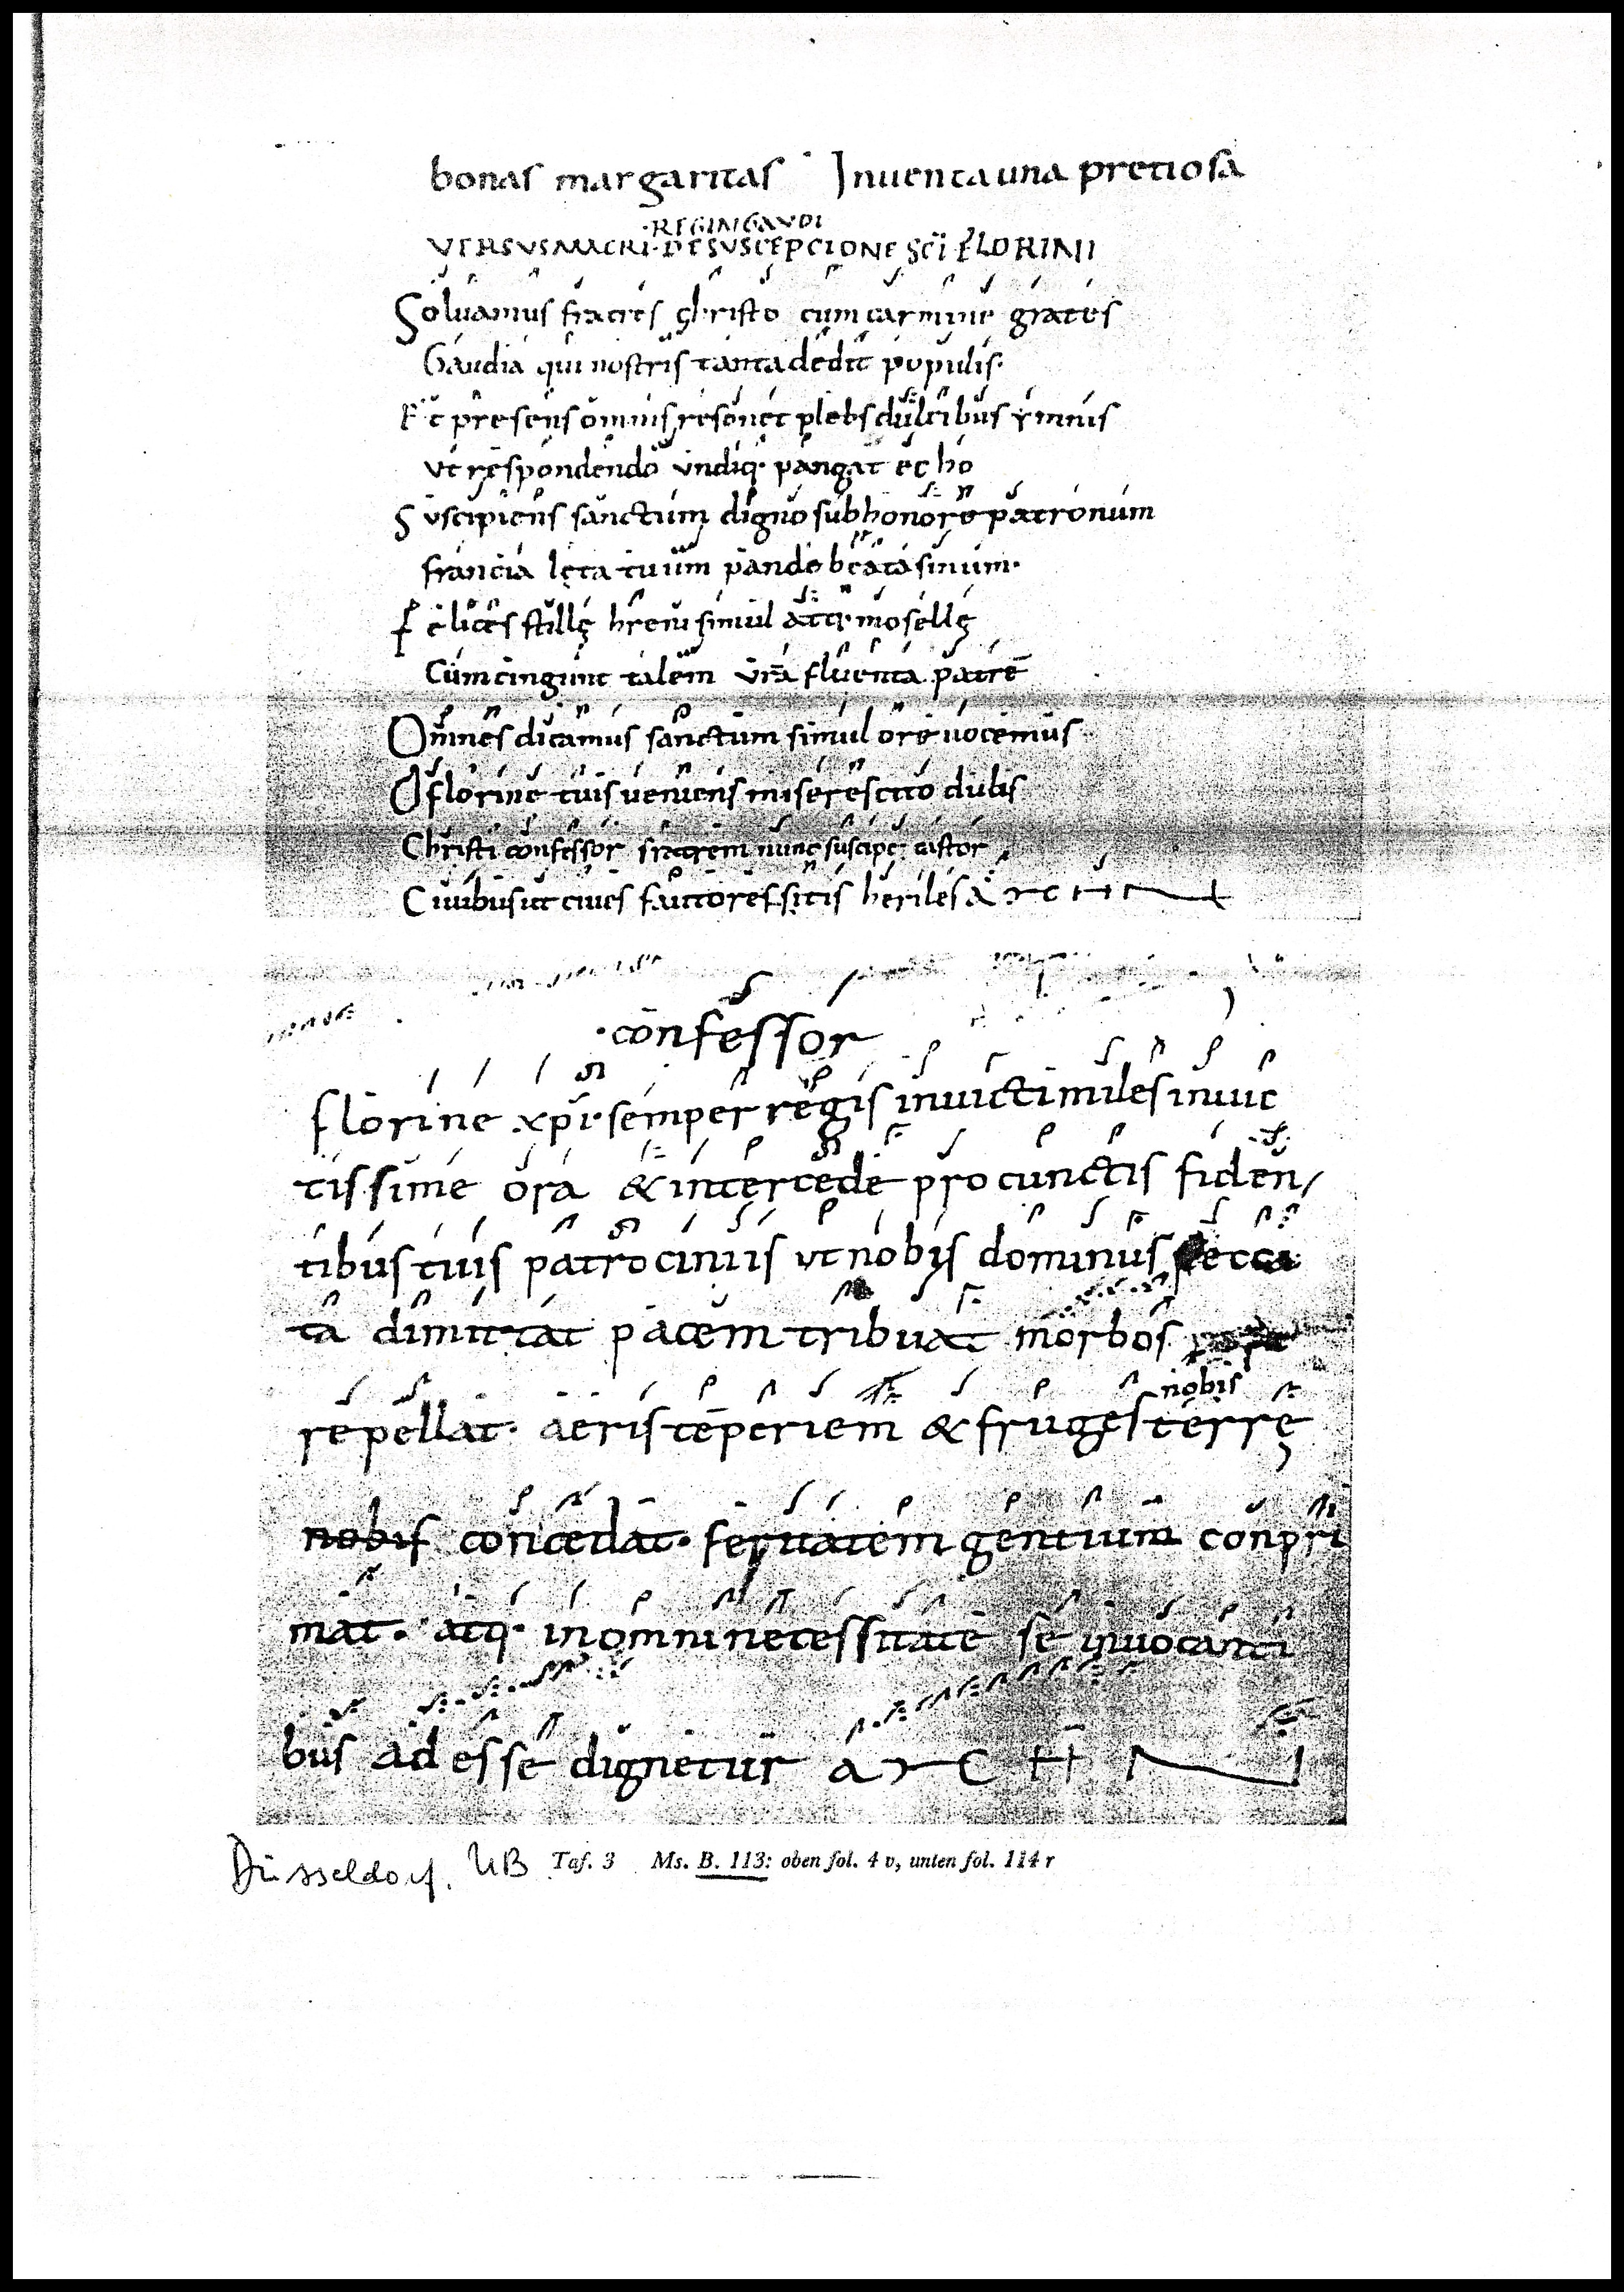 bonas margaritas Inuenta una pretiosa
·REGINGAUDI
VERSUS MACRI· DE SUSCEPCIONE SCI FLORINI
Soluamus fratres christo cum carmine grates
Gaudia qui nostris tanta dedit populis·
Et presens omnis resonet plebs dulcibus ymnis
ut respondendo undiq· pangat echo
Suscipiens sanctum digno sub honore patronum
francia lęta tuum pande beata sinum·
Felices stillę hreni simul atq· mosellę
Cum cingunt talem vrā fluenta patrē
Omnes dicamus sanctum simul ore uocemus
O florine tuis ueniens miserescito dulis
Christi confessor fratrem nunc suscipe castor
Ciuibus ut ciues fautores sitis heriles A M E N
·confessor
florine xpi· semper regis inuicti miles inuic
tissime ora & intercede pro cunctis fiden/
tibus tuis patrociniis ut nobis dominus pecca
ta dimittat pacem tribuat morbos
nobis
repellat· aeris tēperiem & fruges terrę
nobis concedat· feruatem gentium conpri
mat· atq· in omni necessitate se inuocanti
bus adesse dignetur a m e N
Düsseldorf, UB Taf. 3 Ms. B. 113: oben fol. 4 v, unten fol. 114 r